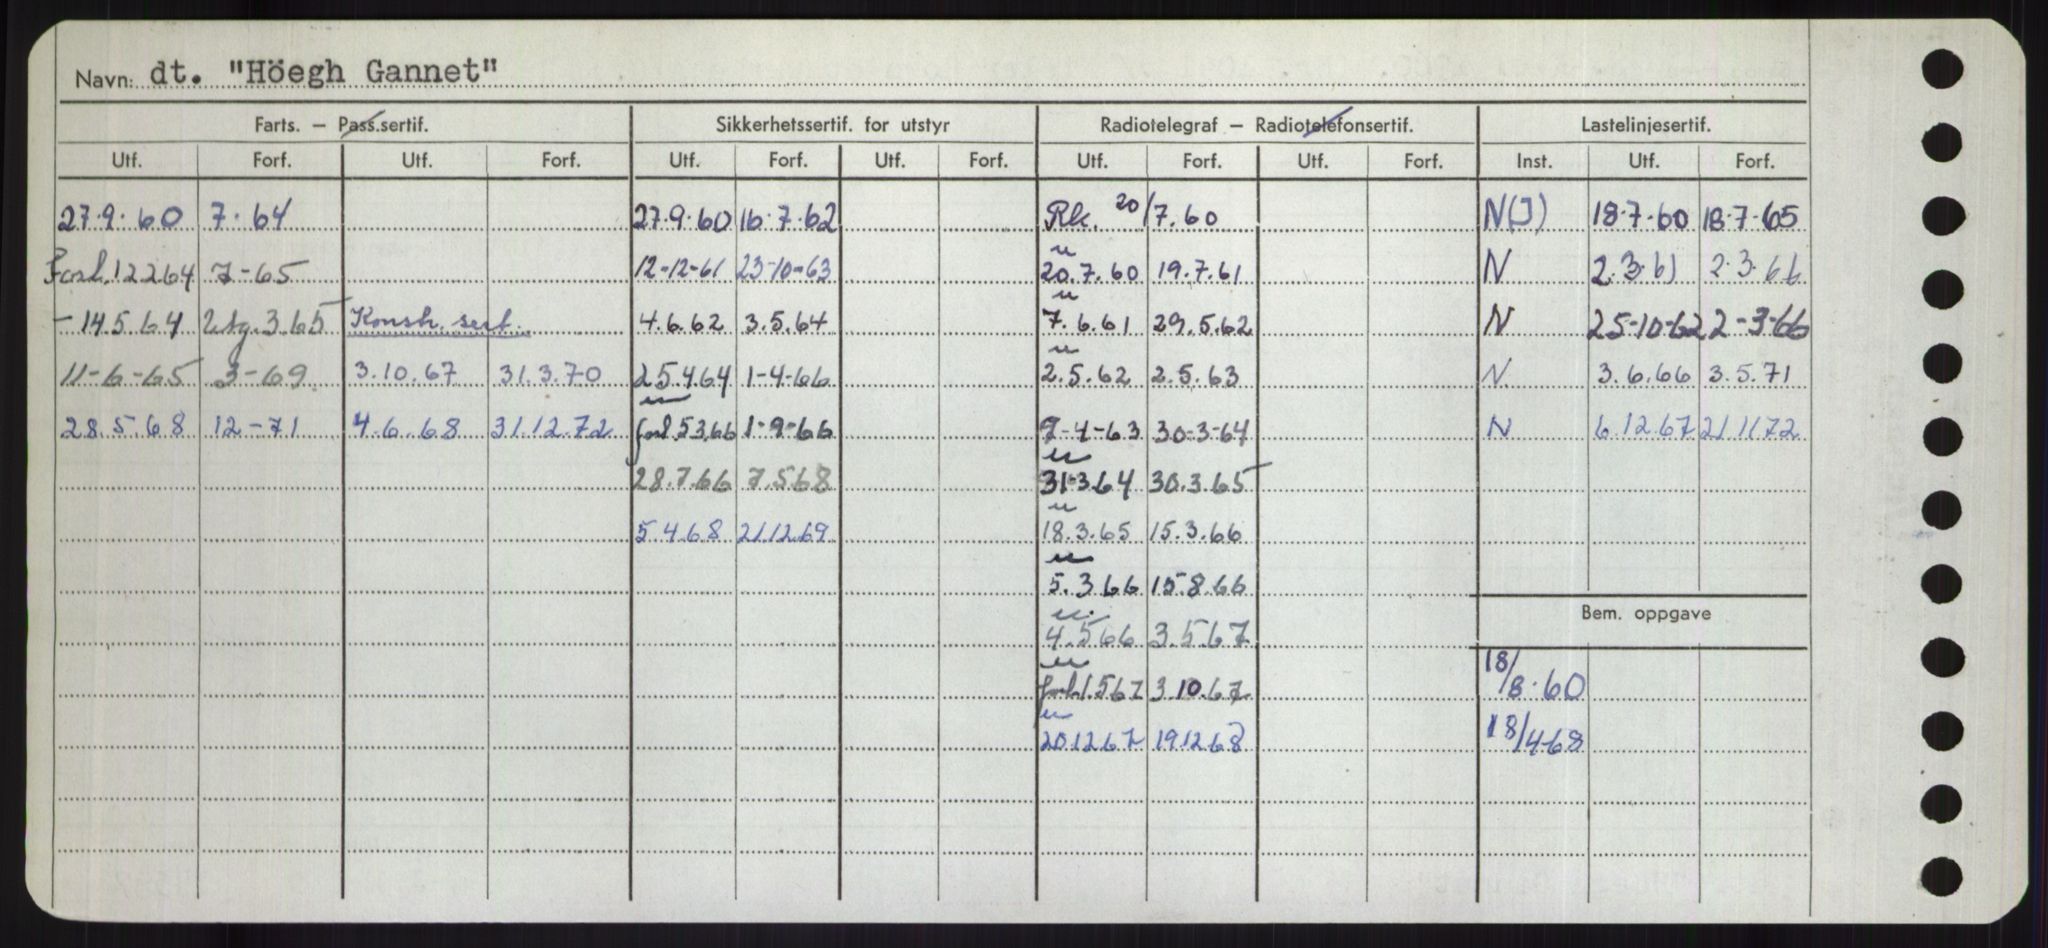 Navn: dt. "Höegh Gannet"
Farts. – Pass.sertif. Sikkerhetssertif. for utstyr Radiotelegraf – Radiotelefonsertif. Lastelinjesertif.
Utf. Forf. Utf. Forf. Utf. Forf. Utf. Forf. Utf. Forf. Utf. Forf. Inst. Utf. Forf.
27.9.60 7.64 27.9.60 16.7.62 Rk. 20/7.60 N(J) 18.7.60 18.7.65
Forl. 12264 7-65 12-12-61 23-10-63 20.7.60 19.7.61 N 2.3.61 2.3.66
- 14.5.64 Utg. 3.65 Konstr. sert. 4.6.62 3.5.64 7.6.61 29.5.62 N 25-10-62 2-3-66
11-6-65 3-69 3.10.67 31.3.70 25.4.64 1-4-66 2.5.62 2.5.63 N 3.6.66 3.5.71
28.5.68 12-71 4.6.68 31.12.72 forl 5366 1-9-66 9-4-63 30-3-64 N 6.12.67 21.11.72
28.7.66 7.5.68 31-3.64 30.3.65
5.4.68 21.12.69 18.3.65 15.3.66
5.3.66 15.8.66
Bem. oppgave
4.5.66 3.5.67
forl. 1.5.67 3.10.67 18/8.60
20.12.67 19.12.68 18/4-68